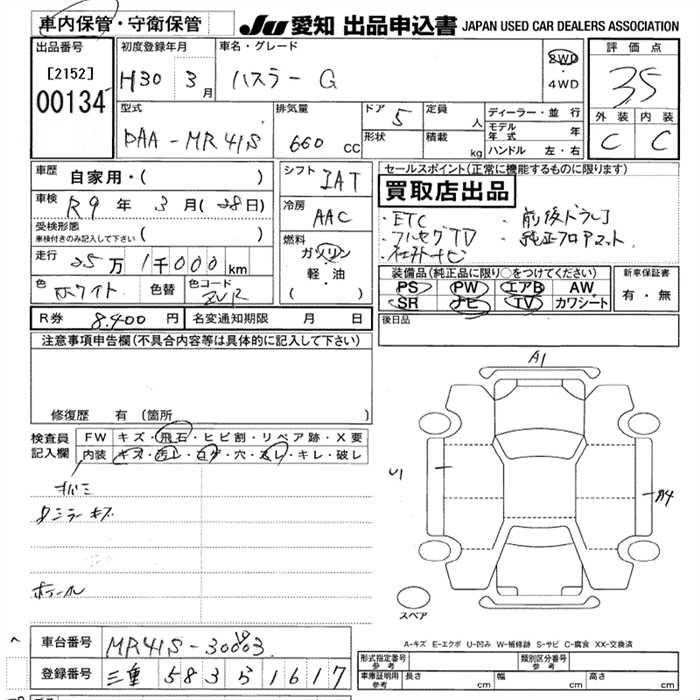 車内保管・守衛保管
JU 愛知 出品申込書 JAPAN USED CAR DEALERS ASSOCIATION
出品番号 [2152] 00134
初度登録年月 H30 3月
車名・グレード ハスラー G
2WD ・4WD
評価点 3.5
外装 C 内装 C
型式 DAA-MR41S
排気量 660 cc
ドア 5
形状
定員 人
積載 kg
ディーラー・並行
モデル年式 年
ハンドル 左・右
車歴 自家用・( )
車検 R9年 3月(28日)
受検形態 車検付きのみ記入して下さい ( )
走行 25万1千000km
色 ホワイト 色替 色コード ZVR
シフト IAT
冷房 AAC
燃料 ガソリン・軽油 ( )
セールスポイント(正常に機能するものに限ります)
買取店出品
・ETC ・前後ドラレコ
・フルセグTV ・純正フロアマット
・社外ナビ
装備品(純正品に限り○をつけてください)
PS PW エアB AW
SR ナビ TV カワシート
新車保証書 有・無
後日品
R券 8,400円 名変通知期限 月 日
注意事項申告欄(不具合内容等は具体的に記入して下さい)
修復歴 有 (箇所 )
検査員記入欄
FW キズ・飛石・ヒビ割・リペア跡・X要
内装 キズ・汚レ・コゲ・穴・スレ・キレ・破レ
キバミ
ミラーキズ
A1
U1
A4
スペア
A-キズ E-エクボ U-凹み W-補修跡 S-サビ C-腐食 XX-交換済
車台番号 MR41S-
登録番号 三重 583 う 1617
形式指定番号 参考
類別区分番号 参考
車庫証明用 参考 長さ cm 幅 cm 高さ cm